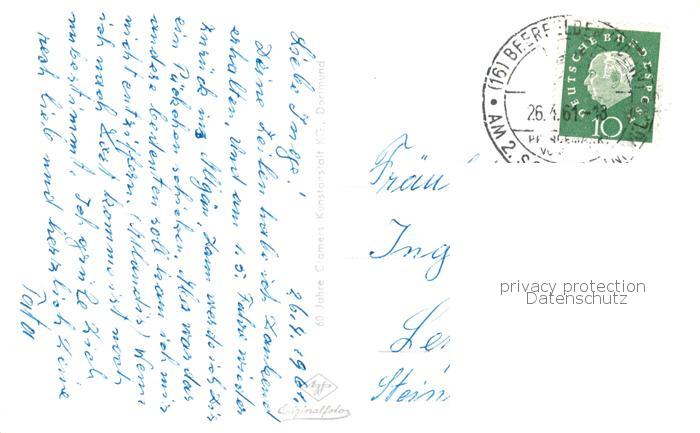 26.4.1961.
Liebe Inge!
Deine Zeilen habe ich dankend
erhalten. Und am 1.5. fahre wieder
zurück ins Allgäu, dann werde ich Dir
ein Päckchen schicken. Was war das
andere bedeuten soll kann ich mir
nicht entziffern. Wenn
ich nach komme ist noch
unbestimmt. Ich grüße Dich
recht lieb und herzlich Deine
60 Jahre Cramers Kunstanstalt KG., Dortmund
Agfa
Originalfoto
(16) BEERFELDEN
26.4.61-18
AM 2.
DEUTSCHE BUNDESPOST
10
Fräu
Ing
Stein
privacy protection
Datenschutz